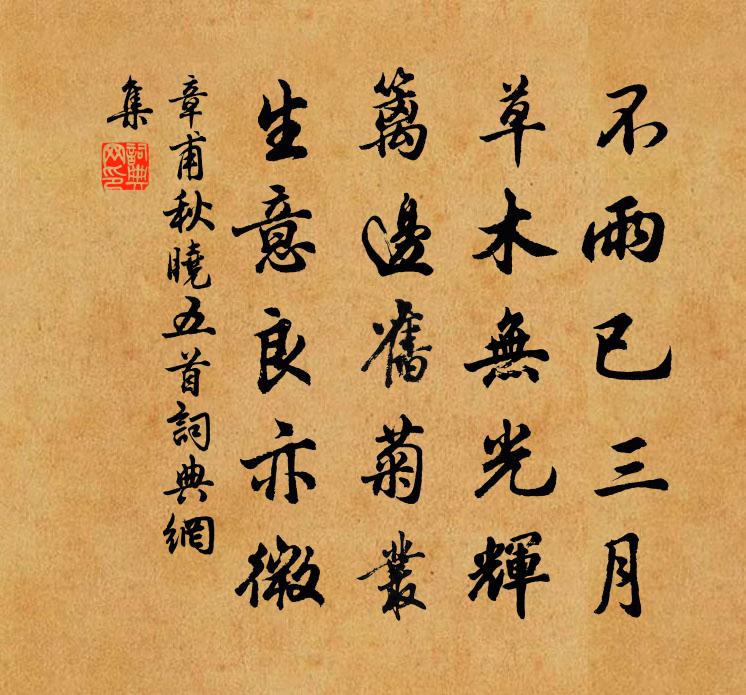 不雨已三月
草木無光輝
籬邊舊菊叢
生意良亦微
章甫秋曉五首詞典網
集
詞典
网印